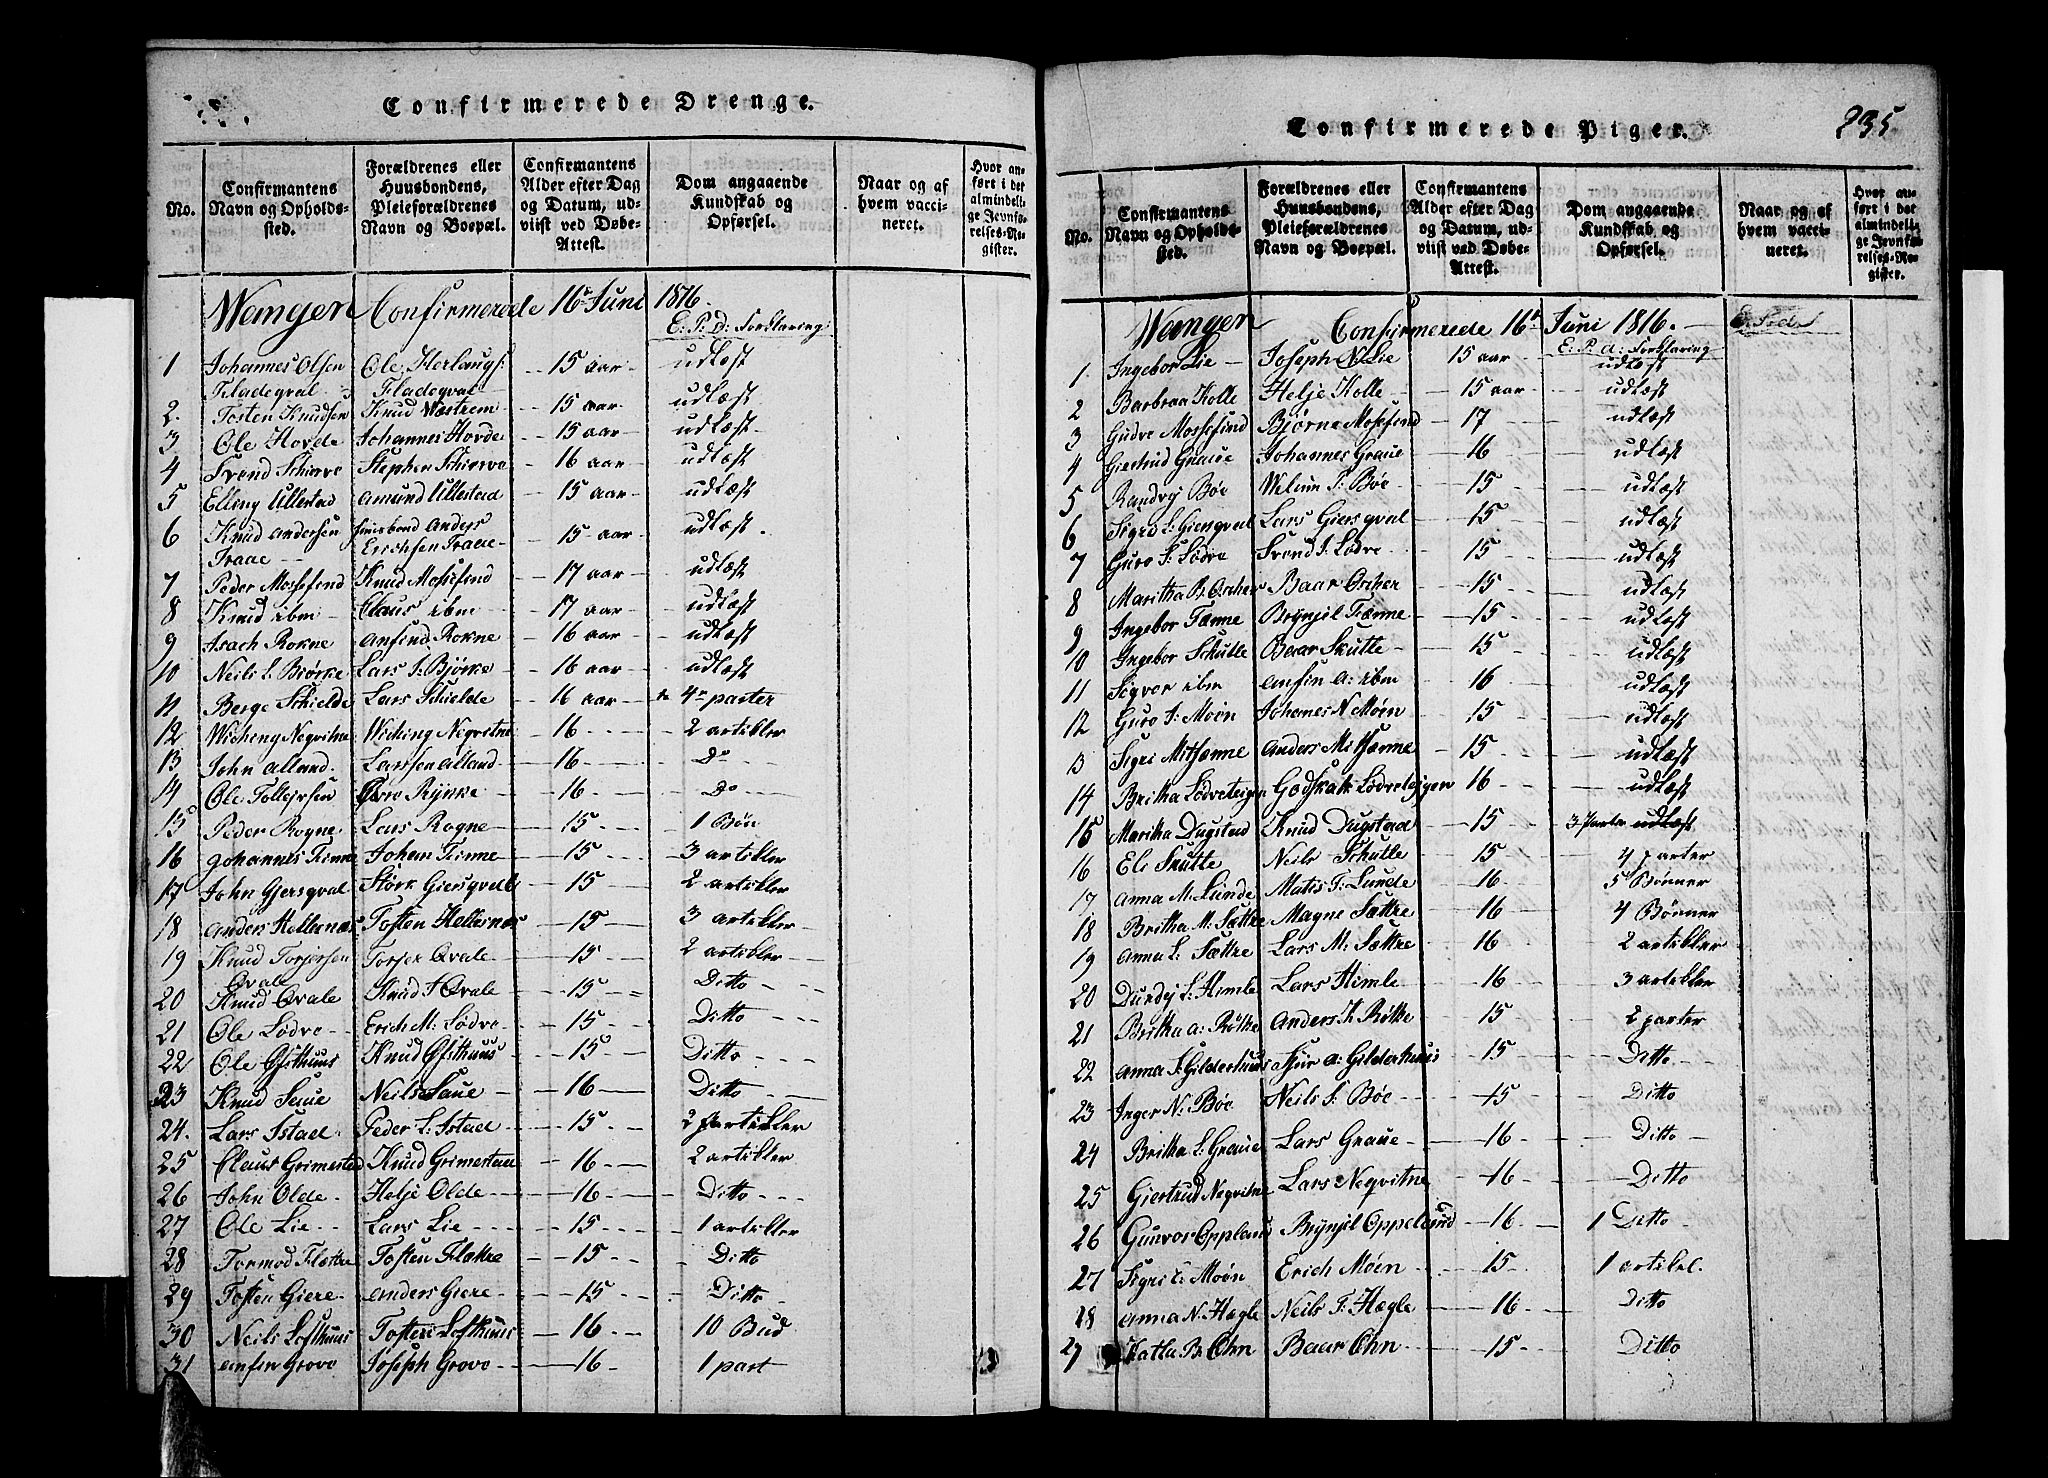 Confirmerede Drenge.
No.
Confirmantens Navn og Opholds-sted.
Forældrenes eller Huusbondens, Pleieforældrenes Navn og Boepæl.
Confirmantens Alder efter Dag og Datum, ud-viist ved Døbe-Attest.
Dom angaaende Kundskab og Opførsel.
Naar og af hvem vacci-neret.
Hvor an-ført i det almindeli-ge Jevnfø-relses-Re-gister.
Wangen Confirmerede 16de Juni 1816.
E: P: d: Forklaring
1 Johannes Olsen Fladeqval Ole Herlaugs: Fladeqval 15 aar udlæst
2. Tosten Knudsen Knud Wæstrem 15 aar udlæst
3 Ole Hovde Johannes Hovde 15 aar udlæst
4 Svend Schierve Stephen Schierve 16 aar udlæst
5 Elleng Ullestad Amund Ullestad 15 aar udlæst
6 Knud Andersen Traae Huusbond Anders Erichsen Traae 15 aar udlæst
7 Peder Mossefind Knud Mossefind 17 aar udlæst
8 Knud ibm Claus ibm 17 aar udlæst
9 Isach Rokne Anfind Rokne 16 aar udlæst
10 Neils L Biørke Lars I. Bjørke 16 aar udlæst
11 Berge Schielde Lars Schielde 16 aar 4r parter
12 Wicheng Neqvitne Wiching Neqvitne 16 2 artikler
13 John Alland Larssen Alland 16 Do
14 Ole Tollefssen Rynke 16 Do
15 Peder Rogne Lars Rogne 15 1 Bøn
16 Johannes Tinne Johan Tinne 15 3 artikler
17 John Gjersqval Størk Giersqval 15 2 artikler
18 Anders Hellernæs Tosten Hellernæs 15 3 artikler
19 Knud Torjersen Qvale Torjer Qvale 15 2 artikler
20 Knud Qvale Knud I Qvale 15 Ditto
21 Ole Lødve Erich M: Lødve 15 Ditto
22 Ole Ofsthuus Knud Ofsthuus 15 Ditto
23 Knud Saue Neils Saue 16 Ditto
24. Lars Istad Peder L: Istad 15 2 artikler
25 Claus Grimestad Knud Grimestad 16 2 artikler
26 John Olde Helje Olde 16 Ditto
27 Ole Lie Lars Lie 15 1 artikler
28 Tormod Flætre Tosten Flætre 15 Ditto
29 Tosten Giere Anders Giere 15 Ditto
30 Neils Lofthuus Tosten Lofthuus 16 10 Bud
31 Anfin Grovo Joseph Grovo 16 1 part
Confirmerede Piger.
235
No.
Confirmantens Navn og Opholds-sted.
Forældrenes eller Huusbondens, Pleieforældrenes Navn og Boepæl.
Confirmantens Alder efter Dag og Datum, ud-viist ved Døbe-Attest.
Dom angaaende Kundskab og Opførsel.
Naar og af hvem vacci-neret.
Hvor an-ført i det almindeli-ge Jevnfø-relses-Re-gister.
Wangen Confirmerede 16de Juni 1816.
E: P: d: Forklaring
1. Ingebor Lie Joseph N Lie 15 aar udlæst
2 Barbraa Kolle Helje Kolle 15 aar udlæst
3 Gudve Mossefind Biørne Mosefind 17 udlæst
4 Giertrud Graue Johannes Graue 16 udlæst
5 Randvej Bøe Welum I: Bøe 15 udlæst
6 Sigrid L: Giersqval Lars Giersqval 15 udlæst
7 Guro S: Lødve Svend I: Lødve 15 udlæst
8 Maritha B: Oscher Baar Oscher 15 udlæst
9 Ingebor Tænne Brynjel Tænne 15 udlæst
10 Ingebor Schutle Baar Skutle 15 udlæst
11 Sigvor ibm Anfin A: ibm 16 udlæst
12 Guro J. Moen Johanes N Møen 15 udlæst
13 Sigri Mitiænne Anders Mitiænne 15 udlæst
14 Britha Lødveteigen Godskalk Lødveteigen 16 udlæst
15 Marika Dugstad Knud Dugstad 15 3 Parter udlæst
16 Eli Skutle Neils Schutle 15 4 parter
17 Anna M. Lunde Matis T: Lunde 16 5 Bønner
18 Britha M: Sættre Magne Sættre 16 4 Bønner
19 Anna L: Sættre Lars M: Sættre 16 2 artikler
20 Durdej L: Himle Lars Himle 16 3 artikler
21 Britha A: Røtke Anders K Røtke 15 2 parter
22 Anna S: Gilderhuus Siur A: Gilderhuus 15 Ditto
23 Inger N: Bøe Neils S: Bøe 15 Ditto
24 Britha L: Graue Lars Graue 16 Ditto
25 Giertrud Neqvitne Lars Neqvitne 16 Ditto
26 Gunvor Opplaud Brynjel Oppelaud 16 1 Ditto
27 Sigri E: Moen Erich Møen 15 1 artikel.
28 Anna N. Hægle Neils T. Hægle 16 Ditto
29 Katla B: Ohn Baar Ohn 15 Ditto